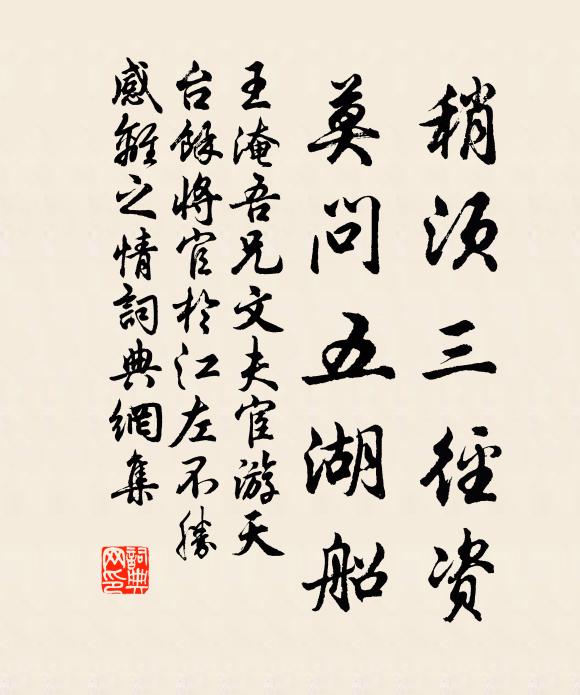 稍須三徑資
莫問五湖船
王淹吾兄文夫宦游天
台餘將官於江左不勝
感離之情詞典網集
詞典网印